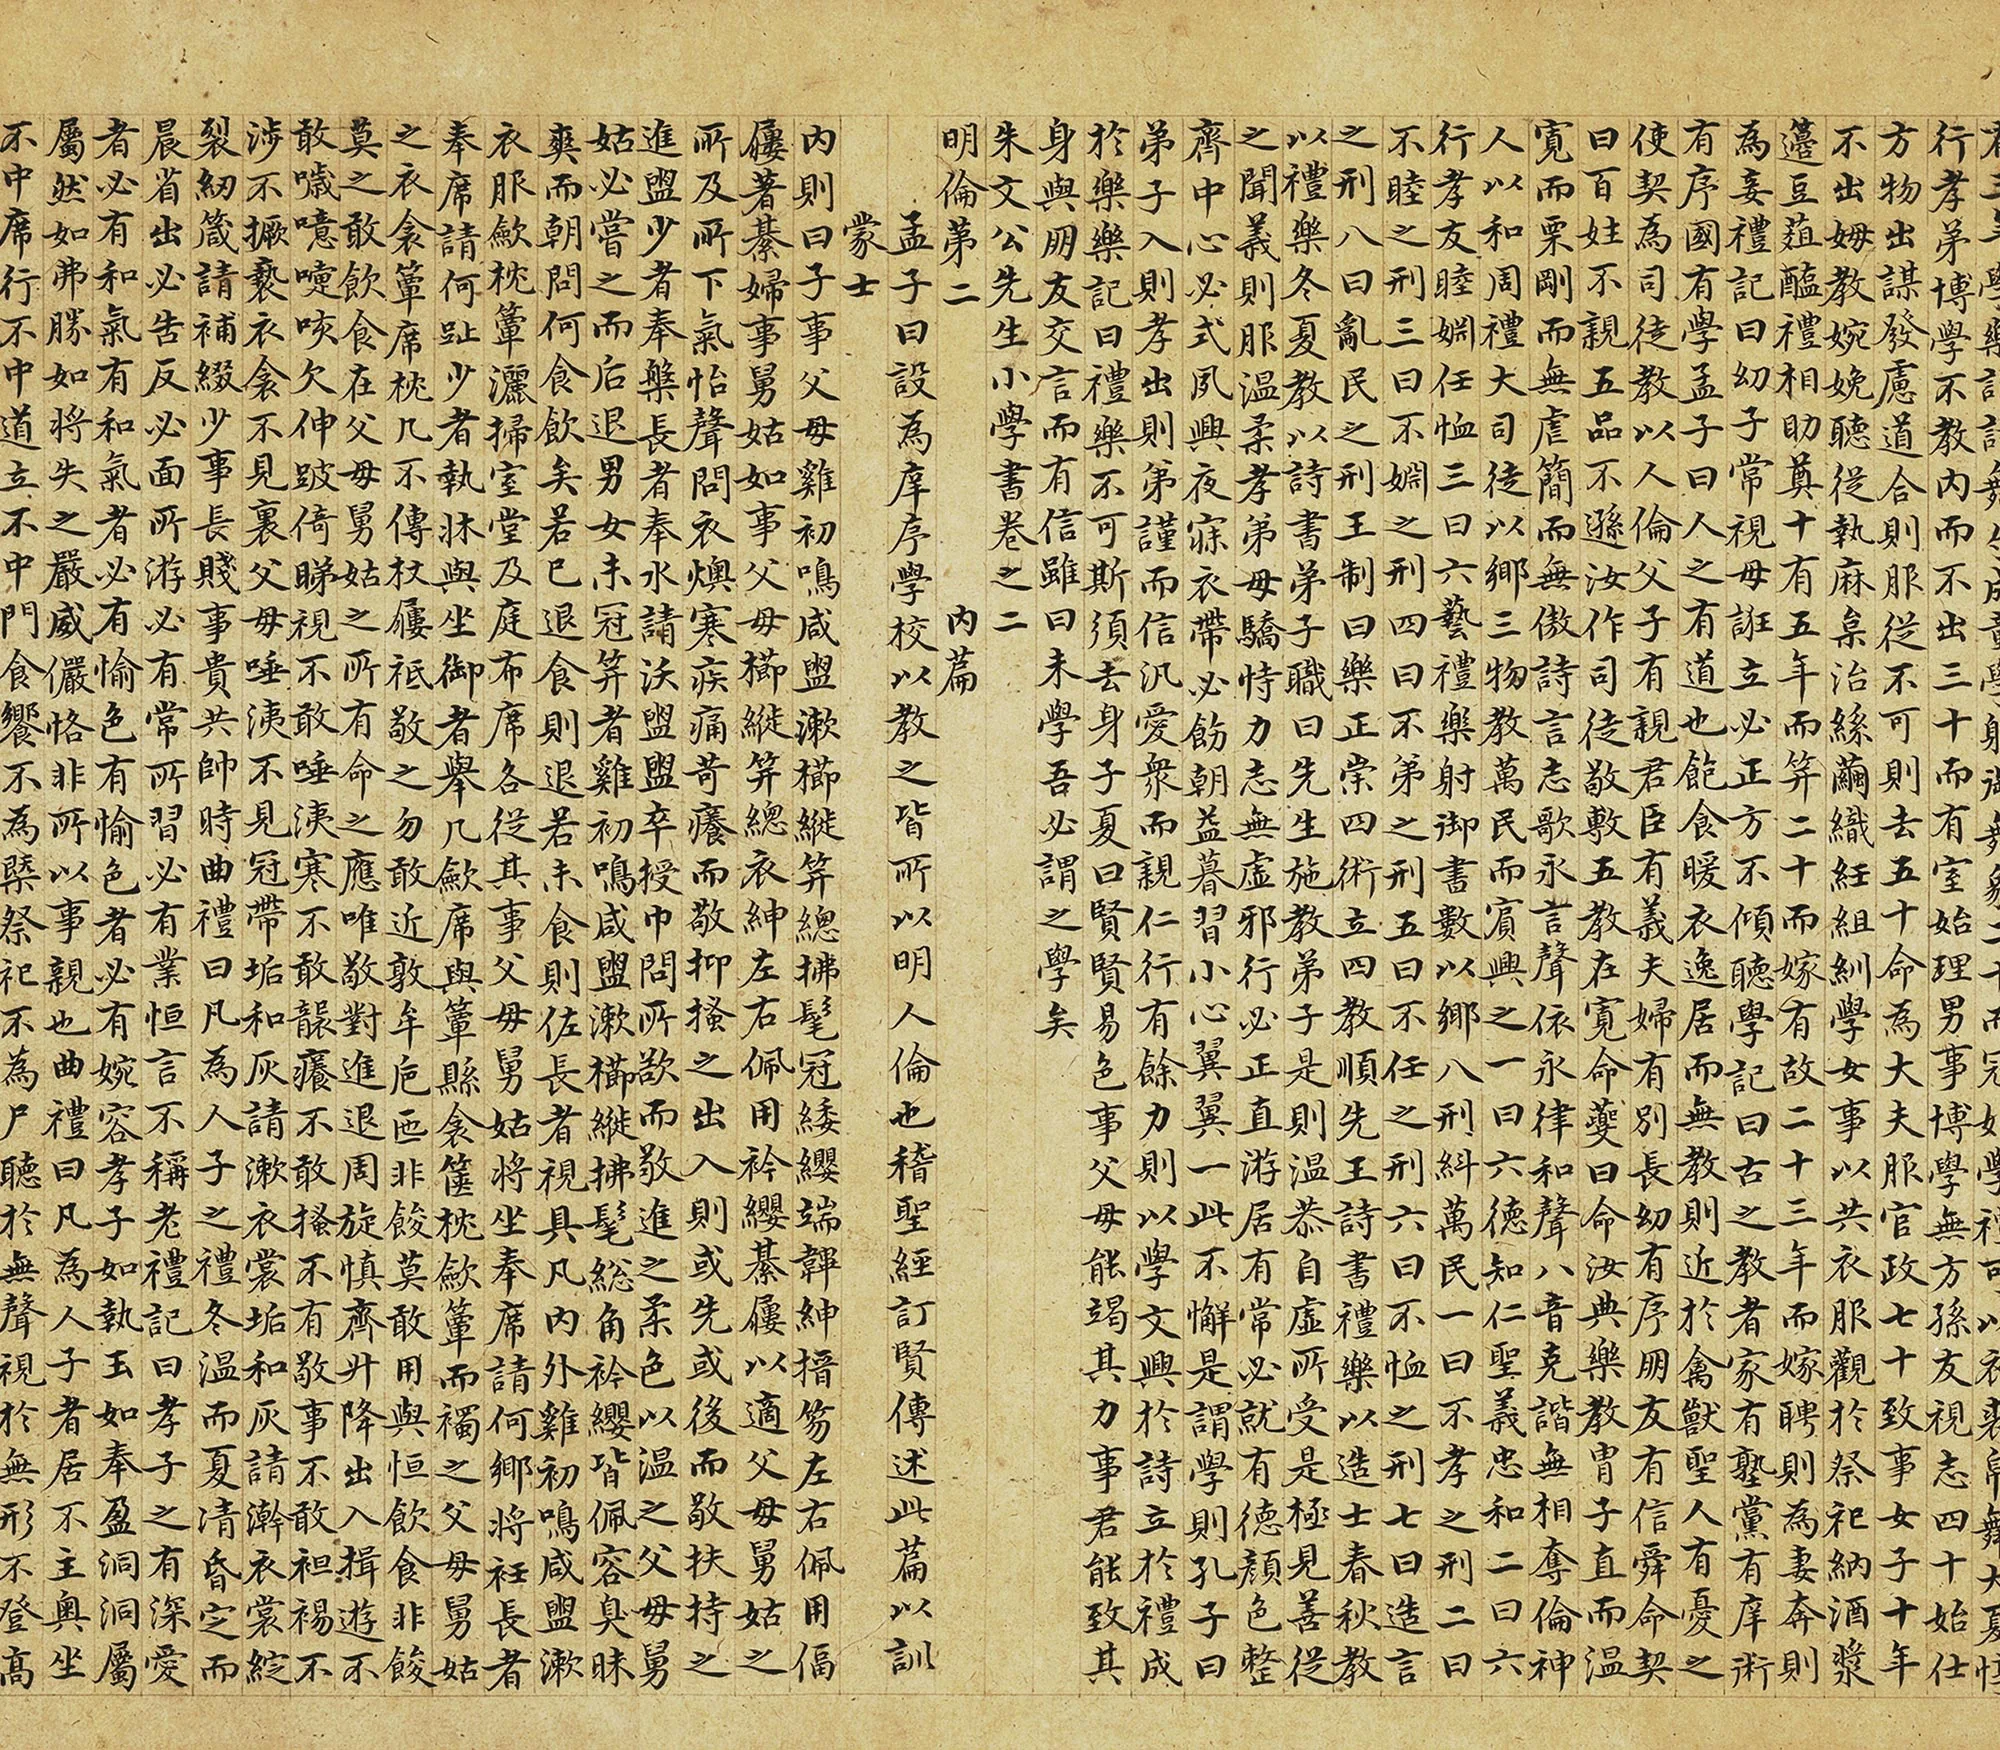 有三年學樂誦詩舞勺成童學射御舞象二十而冠始學禮可以衣裘帛舞大夏惇
行孝弟博學不教內而不出三十而有室始理男事博學無方孫友視志四十始仕
方物出謀發慮道合則服從不可則去五十命為大夫服官政七十致事女子十年
不出姆教婉娩聽從執麻枲治絲繭織紝組紃學女事以共衣服觀於祭祀納酒漿
籩豆菹醢禮相助奠十有五年而笄二十而嫁有故二十三年而嫁聘則為妻奔則
為妾禮記曰幼子常視毋誑立必正方不傾聽學記曰古之教者家有塾黨有庠術
有序國有學孟子曰人之有道也飽食暖衣逸居而無教則近於禽獸聖人有憂之
使契為司徒教以人倫父子有親君臣有義夫婦有別長幼有序朋友有信舜命契
曰百姓不親五品不遜汝作司徒敬敷五教在寬命夔曰命汝典樂教胄子直而溫
寬而栗剛而無虐簡而無傲詩言志歌永言聲依永律和聲八音克諧無相奪倫神
人以和周禮大司徒以鄉三物教萬民而賓興之一曰六德知仁聖義忠和二曰六
行孝友睦婣任恤三曰六藝禮樂射御書數以鄉八刑糾萬民一曰不孝之刑二曰
不睦之刑三曰不婣之刑四曰不弟之刑五曰不任之刑六曰不恤之刑七曰造言
之刑八曰亂民之刑王制曰樂正崇四術立四教順先王詩書禮樂以造士春秋教
以禮樂冬夏教以詩書弟子職曰先生施教弟子是則溫恭自虛所受是極見善從
之聞義則服溫柔孝弟毋驕恃力志無虛邪行必正直游居有常必就有德顏色整
齊中心必式夙興夜寐衣帶必飭朝益暮習小心翼翼一此不懈是謂學則孔子曰
弟子入則孝出則弟謹而信汎愛眾而親仁行有餘力則以學文興於詩立於禮成
於樂樂記曰禮樂不可斯須去身子夏曰賢賢易色事父母能竭其力事君能致其
身與朋友交言而有信雖曰未學吾必謂之學矣
朱文公先生小學書卷之二
明倫第二 內篇
孟子曰設為庠序學校以教之皆所以明人倫也稽聖經訂賢傳述此篇以訓
蒙士
內則曰子事父母雞初鳴咸盥漱櫛縰笄總拂髦冠緌纓端韠紳搢笏左右佩用偪
屨著綦婦事舅姑如事父母櫛縰笄總衣紳左右佩用衿纓綦屨以適父母舅姑之
所及所下氣怡聲問衣燠寒疾痛苛癢而敬抑搔之出入則或先或後而敬扶持之
進盥少者奉槃長者奉水請沃盥盥卒授巾問所欲而敬進之柔色以溫之父母舅
姑必嘗之而后退男女未冠笄者雞初鳴咸盥漱櫛縰拂髦総角衿纓皆佩容臭昧
爽而朝問何食飲矣若已退食則退若未食則佐長者視具凡內外雞初鳴咸盥漱
衣服斂枕簟灑掃室堂及庭布席各從其事父母舅姑將坐奉席請何鄉將衽長者
奉席請何趾少者執牀與坐御者舉几斂席與簟縣衾篋枕斂簟而襡之父母舅姑
之衣衾簟席枕几不傳杖屨祗敬之勿敢近敦牟卮匜非餕莫敢用與恒飲食非餕
莫之敢飲食在父母舅姑之所有命之應唯敬對進退周旋慎齊升降出入揖遊不
敢噦噫嚏咳欠伸跛倚睇視不敢唾洟寒不敢襲癢不敢搔不有敬事不敢袒裼不
涉不撅褻衣衾不見裏父母唾洟不見冠帶垢和灰請漱衣裳垢和灰請澣衣裳綻
裂紉箴請補綴少事長賤事貴共帥時曲禮曰凡為人子之禮冬溫而夏凊昏定而
晨省出必告反必面所游必有常所習必有業恒言不稱老禮記曰孝子之有深愛
者必有和氣有和氣者必有愉色有愉色者必有婉容孝子如執玉如奉盈洞洞屬
屬然如弗勝如將失之嚴威儼恪非所以事親也曲禮曰凡為人子者居不主奧坐
不中席行不中道立不中門食饗不為槩祭祀不為尸聽於無聲視於無形不登高